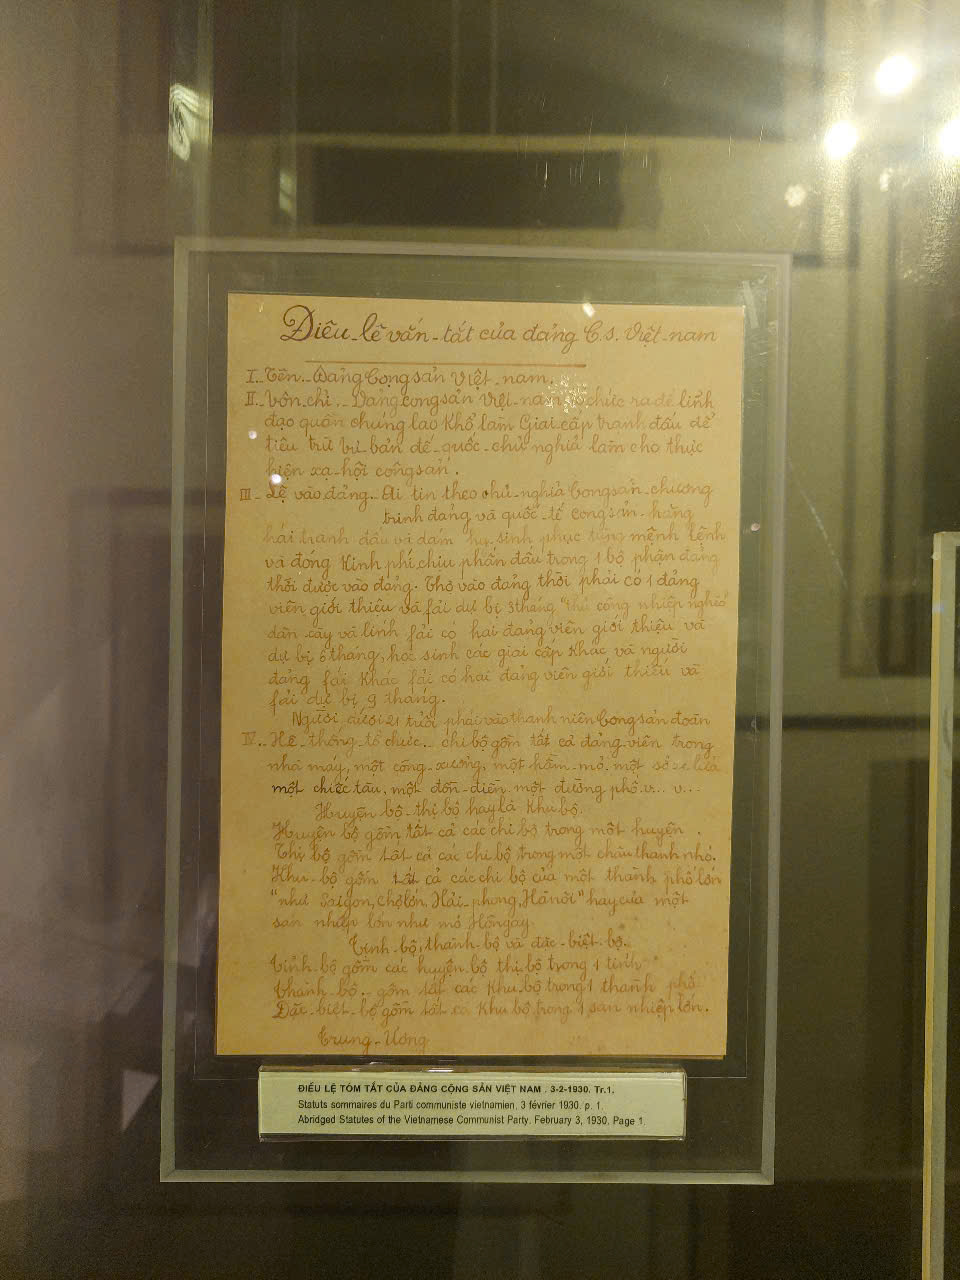 Điều-lệ vắn-tắt của đảng C.S. Việt-nam
I.. Tên.. Đảng Cộng sản Việt-nam.
II.. Vôn chỉ.. Đảng cộng sản Việt-nam tổ chức ra để lĩnh
đạo quần chúng lao khổ làm Giai cấp tranh đấu để
tiêu trừ tư bản đế-quốc-chủ nghĩa làm cho thực
hiện xa-hội cộng sản.
III- Lệ vào đảng.. Ai tin theo chủ-nghĩa Cộng sản-chương
trình đảng và quốc-tế cộng sản-hăng
hái tranh đấu và dám hy-sinh phục tùng mệnh lệnh
và đóng kinh phí, chịu phấn đấu trong 1 bộ phận đảng
thời được vào đảng. Thợ vào đảng thời phải có 1 đảng
viên giới thiệu và fải dự bị 3 tháng "thủ công nghiệp nghèo"
dân cày và lính fải có hai đảng viên giới thiệu và
dự bị 6 tháng, học sinh các giai cấp khác và người
đảng fái khác fải có hai đảng viên giới thiệu và
fải dự bị 9 tháng.
Người dưới 21 tuổi phải vào thanh niên Cộng sản đoàn
IV.. Hệ-thống-tổ chức.. chi bộ gồm tất cả đảng-viên trong
nhà máy, một công-xưởng, một hầm-mỏ, một sở xe lửa
một chiếc tàu, một đồn-điền, một đường phố.v.. v...
Huyện bộ-thị bộ hay là khu bộ.
Huyện bộ gồm tất cả các chi bộ trong một huyện.
Thị bộ gồm tất cả các chi bộ trong một châu thành nhỏ.
Khu-bộ gồm tất cả các chi bộ của một thành phố lớn
"như Saigon, Chợ lớn, Hải-phòng, Hà nội" hay của một
sản nhiệp lớn như mỏ Hòngay
Tỉnh-bộ, thành-bộ và đặc-biệt-bộ.
Tỉnh-bộ gồm các huyện-bộ thị bộ trong 1 tỉnh
Thành-bộ.. gồm tất các khu bộ trong 1 thành phố
Đặc-biệt-bộ gồm tất cả khu bộ trong 1 sản nhiệp lớn.
Trung-Ương
ĐIỀU LỆ TÓM TẮT CỦA ĐẢNG CỘNG SẢN VIỆT NAM . 3-2-1930. Tr.1.
Statuts sommaires du Parti communiste vietnamien. 3 février 1930. p. 1.
Abridged Statutes of the Vietnamese Communist Party. February 3, 1930. Page 1.